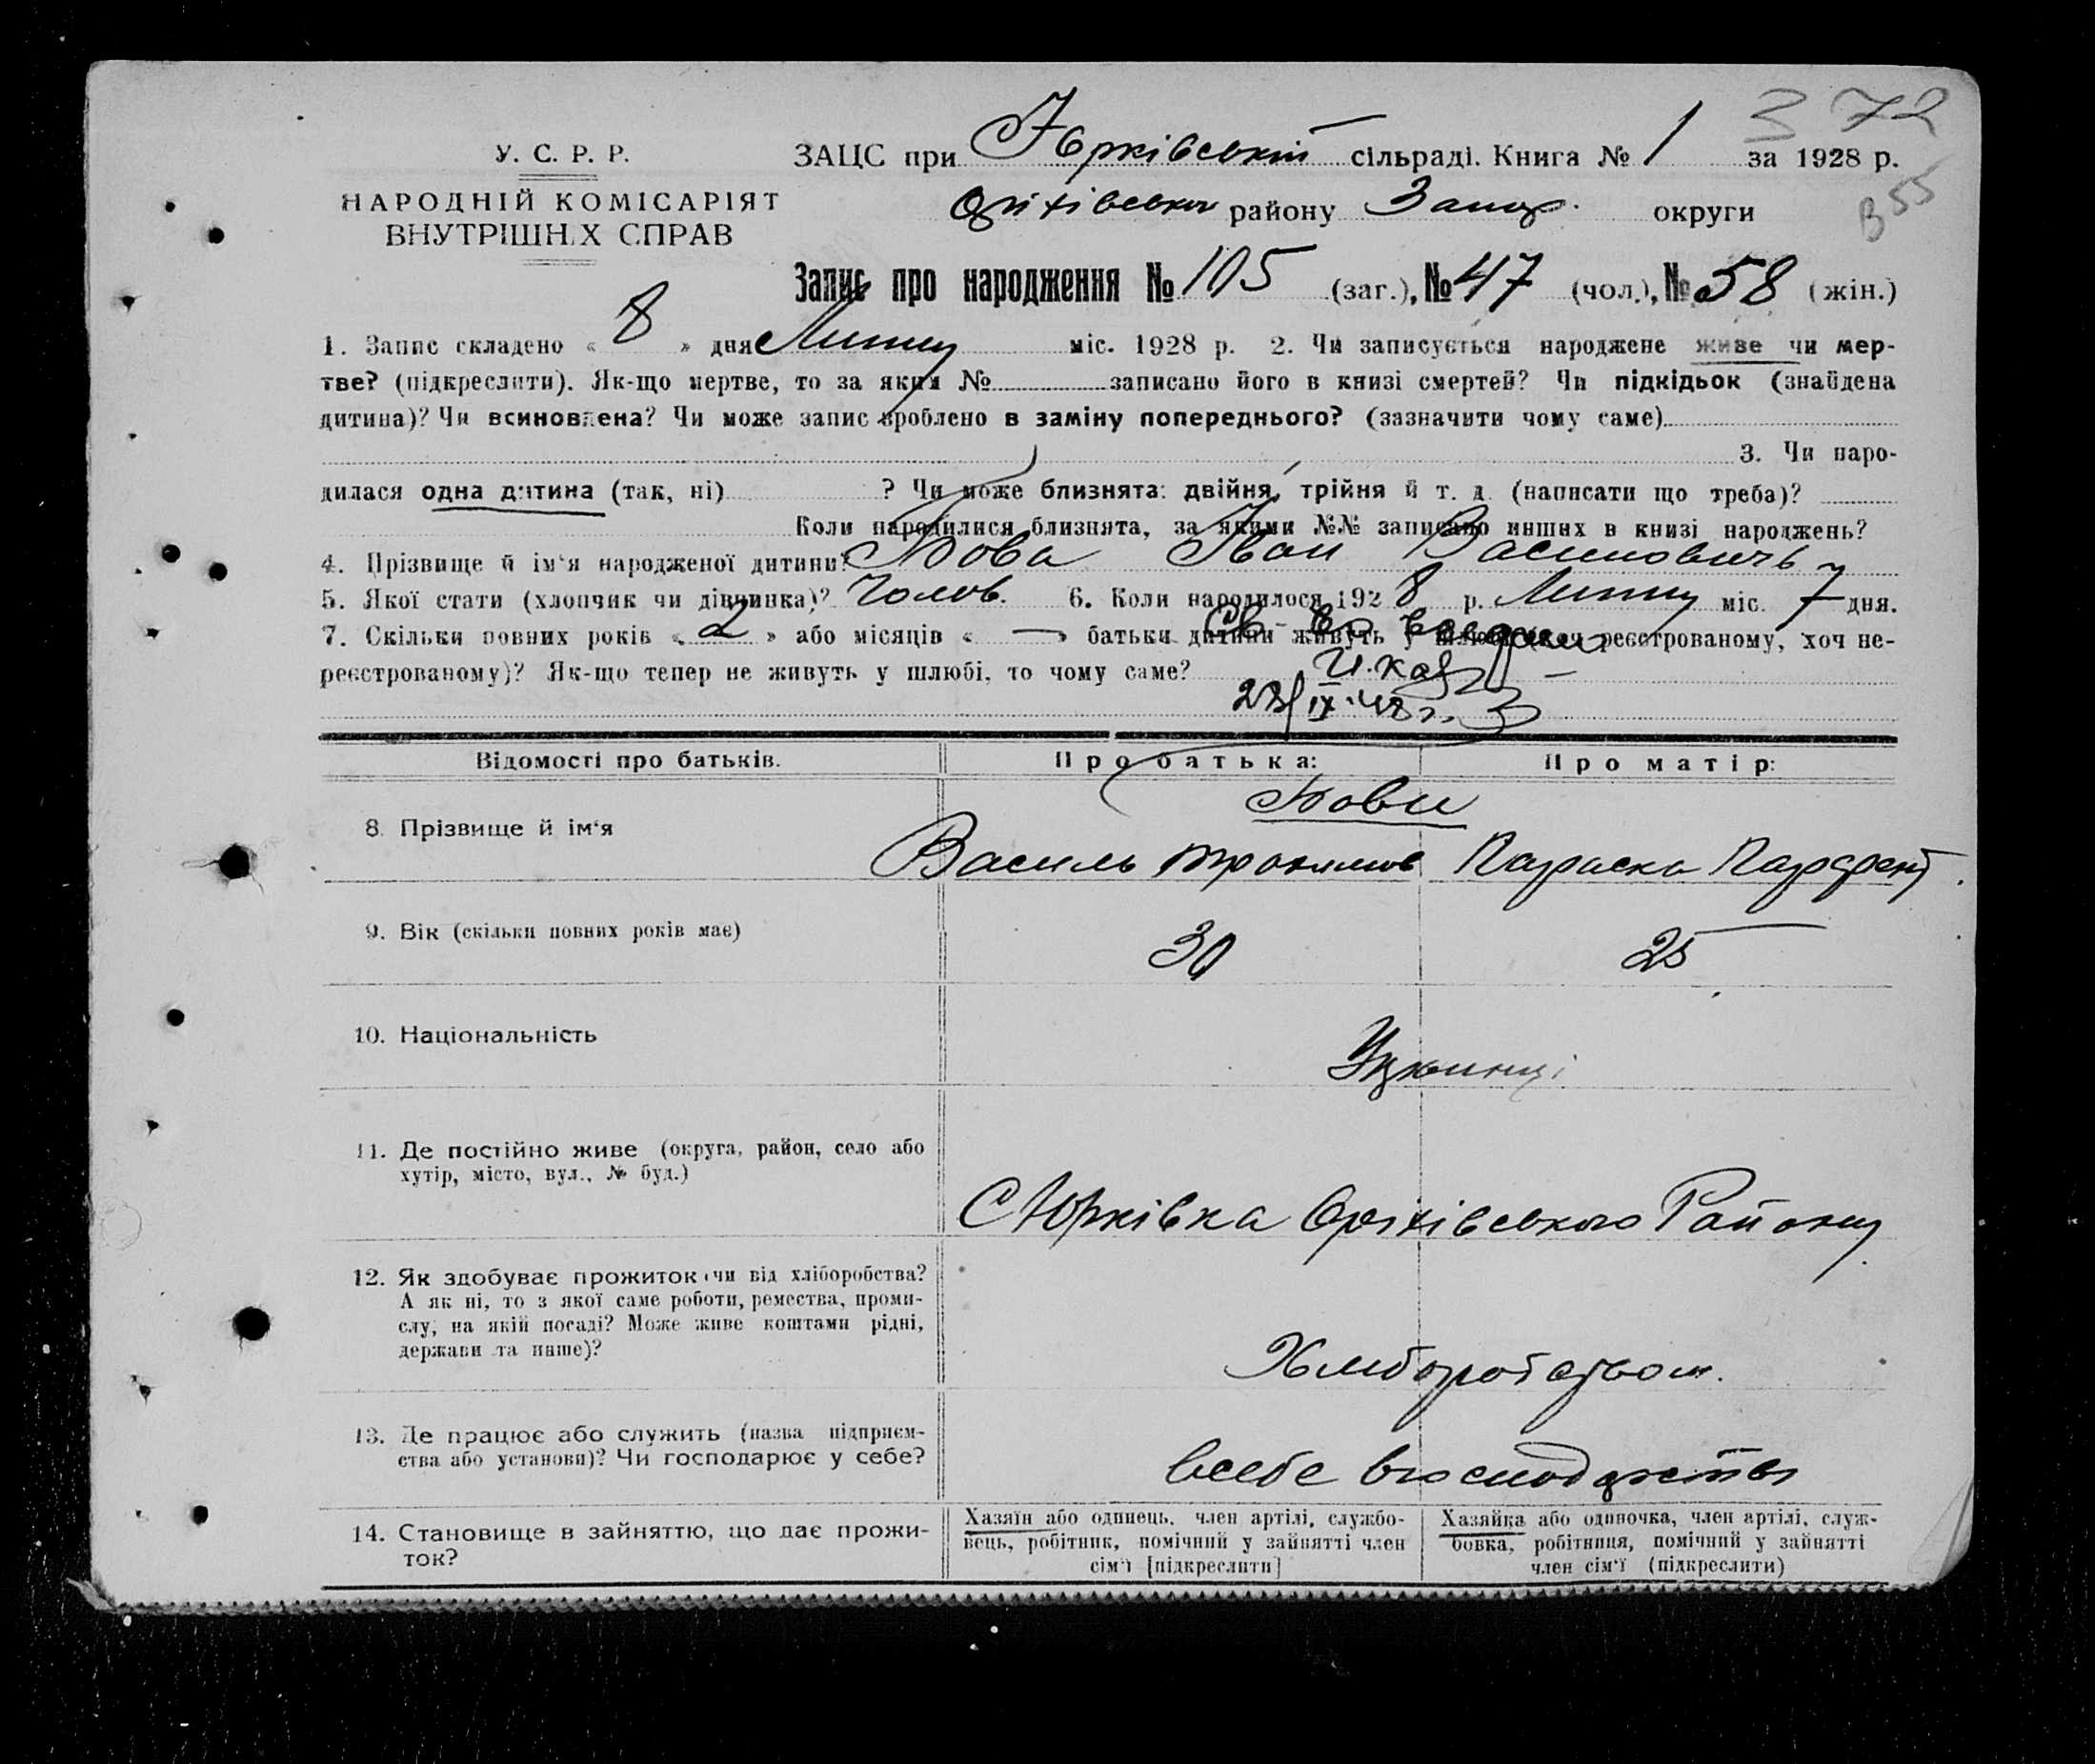 3 72
У. С. Р. Р.
ЗАЦС при Юрківській сільраді. Книга № 1 за 1928 р.
В 55
НАРОДНІЙ КОМІСАРІЯТ
ВНУТРІШНІХ СПРАВ
Оріхівськог району Запор. округи
Запис про народження № 105 (заг.), № 47 (чол.), № 58 (жін.)
1. Запис складено « 8 » дня Липня міс. 1928 р. 2. Чи записується народжене живе чи мер-
тве? (підкреслити). Як-що мертве, то за яким № записано його в книзі смертей? Чи підкідьок (знайдена
дитина)? Чи всиновлена? Чи може запис зроблено в заміну попереднього? (зазначити чому саме)
3. Чи наро-
дилася одна дитина (так, ні) ? Чи може близнята: двійня, трійня й т. д. (написати що треба)?
Коли народилися близнята, за якими №№ записано инших в книзі народжень?
4. Прізвище й ім'я народженої дитини? Іван Василовичь
5. Якої стати (хлопчик чи дівчинка)? Чолов. 6. Коли народилося 1928 р. Липня міс. 7 дня.
7. Скільки повних років « 2 » або місяців « — » батьки дитини живуть у шлюбі (хоч реєстрованому, хоч не-
реєстрованому)? Як-що тепер не живуть у шлюбі, то чому саме?
Відомості про батьків.
Про батька:
Про матір:
8. Прізвище й ім'я
Василь Трохимов Параска Парфент
9. Вік (скільки повних років має)
30
25
10. Національність
Українці
11. Де постійно живе (округа, район, село або
хутір, місто, вул., № буд.)
С Юрківка Оріхівського Району
12. Як здобуває прожиток: чи від хліборобства?
А як ні, то з якої саме роботи, ремества, проми-
слу, на якій посаді? Може живе коштами рідні,
держави та инше)?
Хліборобством.
13. Де працює або служить (назва підприєм-
ства або установи)? Чи господарює у себе?
всебе вгосподарстві
14. Становище в зайняттю, що дає прожи-
ток?
Хазяїн або одинець, член артілі, службо-
вець, робітник, помічний у зайнятті член
сім'ї [підкреслити]
Хазяйка або одиночка, член артілі, служ-
бовка, робітниця, помічний у зайнятті
член сім'ї (підкреслити)